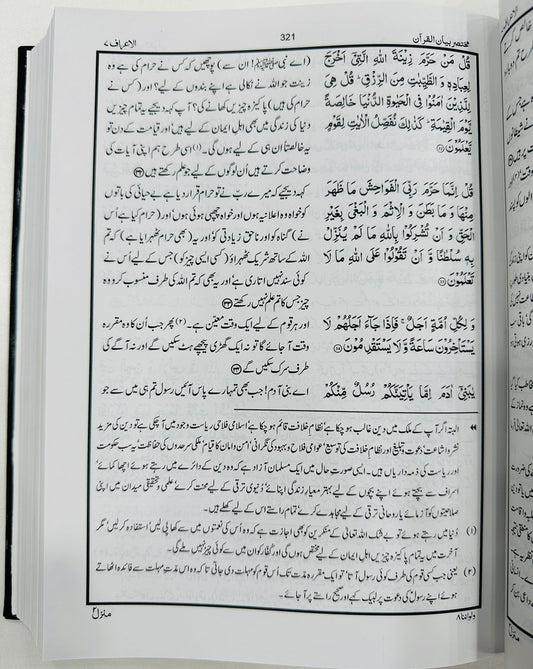 مختصر بیان القرآن
321
الاعراف ۷
قُلْ مَنْ حَرَّمَ زِيْنَةَ اللّٰهِ الَّتِيْٓ اَخْرَجَ
لِعِبَادِهٖ وَ الطَّيِّبٰتِ مِنَ الرِّزْقِ ؕ قُلْ هِيَ
لِلَّذِيْنَ اٰمَنُوْا فِي الْحَيٰوةِ الدُّنْيَا خَالِصَةً
يَّوْمَ الْقِيٰمَةِ ؕ كَذٰلِكَ نُفَصِّلُ الْاٰيٰتِ لِقَوْمٍ
يَّعْلَمُوْنَ
قُلْ اِنَّمَا حَرَّمَ رَبِّيَ الْفَوَاحِشَ مَا ظَهَرَ
مِنْهَا وَ مَا بَطَنَ وَ الْاِثْمَ وَ الْبَغْيَ بِغَيْرِ
الْحَقِّ وَ اَنْ تُشْرِكُوْا بِاللّٰهِ مَا لَمْ يُنَزِّلْ
بِهٖ سُلْطٰنًا وَّ اَنْ تَقُوْلُوْا عَلَى اللّٰهِ مَا لَا
تَعْلَمُوْنَ
وَ لِكُلِّ اُمَّةٍ اَجَلٌ ۚ فَاِذَا جَآءَ اَجَلُهُمْ لَا
يَسْتَاْخِرُوْنَ سَاعَةً وَّ لَا يَسْتَقْدِمُوْنَ
يٰبَنِيْٓ اٰدَمَ اِمَّا يَاْتِيَنَّكُمْ رُسُلٌ مِّنْكُمْ
(اے نبی ﷺ! ان سے) پوچھیں کہ کس نے حرام کی ہے وہ
زینت جو اللہ نے نکالی ہے اپنے بندوں کے لیے؟ اور (کس نے
حرام کی ہیں) پاکیزہ چیزیں کھانے کی؟ آپ کہہ دیجیے یہ تمام چیزیں
دنیا کی زندگی میں بھی اہل ایمان کے لیے ہیں اور قیامت کے دن تو
یہ خالصتاً ان ہی کے لیے ہوں گی۔(۱) اسی طرح ہم اپنی آیات کی
وضاحت کرتے ہیں اُن لوگوں کے لیے جو علم رکھتے ہیں
کہہ دیجیے کہ میرے رب نے تو حرام قرار دیا ہے بے حیائی کی باتوں
کو خواہ وہ اعلانیہ ہوں اور خواہ چھپی ہوئی ہوں اور (حرام کیا ہے اُس
نے) گناہ کو اور ناحق زیادتی کو اور یہ (بھی حرام ٹھہرایا ہے) کہ تم
اللہ کے ساتھ شریک ٹھہراؤ (کسی ایسی چیز کو) جس کے لیے اُس نے
کوئی سند نہیں اتاری ہے اور یہ بھی کہ تم اللہ کی طرف منسوب کرو وہ
چیز جس کا تم علم نہیں رکھتے
اور ہر قوم کے لیے ایک وقت معین ہے۔(۲) پھر جب اُن کا وہ مقررہ
وقت آ جائے گا تو نہ ایک گھڑی پیچھے ہٹ سکیں گے اور نہ آگے کی
طرف سرک سکیں گے
اے بنی آدم! جب بھی تمہارے پاس آئیں رسول تم ہی میں سے جو
البتہ اگر آپ کے ملک میں دین غالب ہو چکا ہے نظام خلافت قائم ہو چکا ہے اسلامی فلاحی ریاست وجود میں آ چکی ہے تو دین کی مزید
نشر و اشاعت، دعوت و تبلیغ اور نظام خلافت کی توسیع، عوامی فلاح و بہبود کی نگرانی، امن و امان کا قیام، ملکی سرحدوں کی حفاظت، یہ سب حکومت
اور ریاست کی ذمہ داریاں ہیں۔ ایسی صورت حال میں ایک مسلمان آزاد ہے کہ وہ دین کے دائرے میں رہتے ہوئے اچھا کمائے
اسراف سے بچتے ہوئے اپنے بچوں کے لیے بہتر معیار زندگی اپنائے، دنیوی ترقی کے لیے محنت کرے، علمی و تحقیقی میدان میں اپنی
صلاحیتوں کو آزمائے یا روحانی ترقی کے لیے مجاہدے کرے، تمام راستے اس کے لیے کھلے ہیں۔
(۱) دنیا میں رہتے ہوئے تو بے شک اللہ تعالیٰ کے منکرین کو بھی اجازت ہے کہ وہ اُس کی نعمتوں میں سے کھا پی لیں، استفادہ کر لیں، مگر
آخرت میں یہ تمام پاکیزہ چیزیں اہل ایمان کے لیے مختص ہوں گی اور کفار کو ان میں سے کوئی چیز نہیں ملے گی۔
(۲) یعنی جب کسی قوم کی طرف کوئی رسول آتا تو ایک مقررہ مدت تک اُس قوم کو مہلت دی جاتی تا کہ وہ اس مدت مہلت سے فائدہ اٹھاتے
ہوئے اپنے رسول کی دعوت پر لبیک کہے اور صحیح راستے پر آ جائے۔
ولواننا ۸
منزل ۲